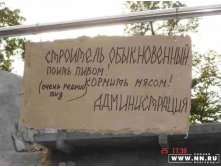 СТРОИТЕЛЬ ОБЫКНОВЕННЫЙ
ПОИТЬ ПИВОМ
(ОЧЕНЬ РЕДКИЙ КОРМИТЬ МЯСОМ!
ВИД)
АДМИНИСТРАЦИЯ
25 17:39
WWW.NN.RU